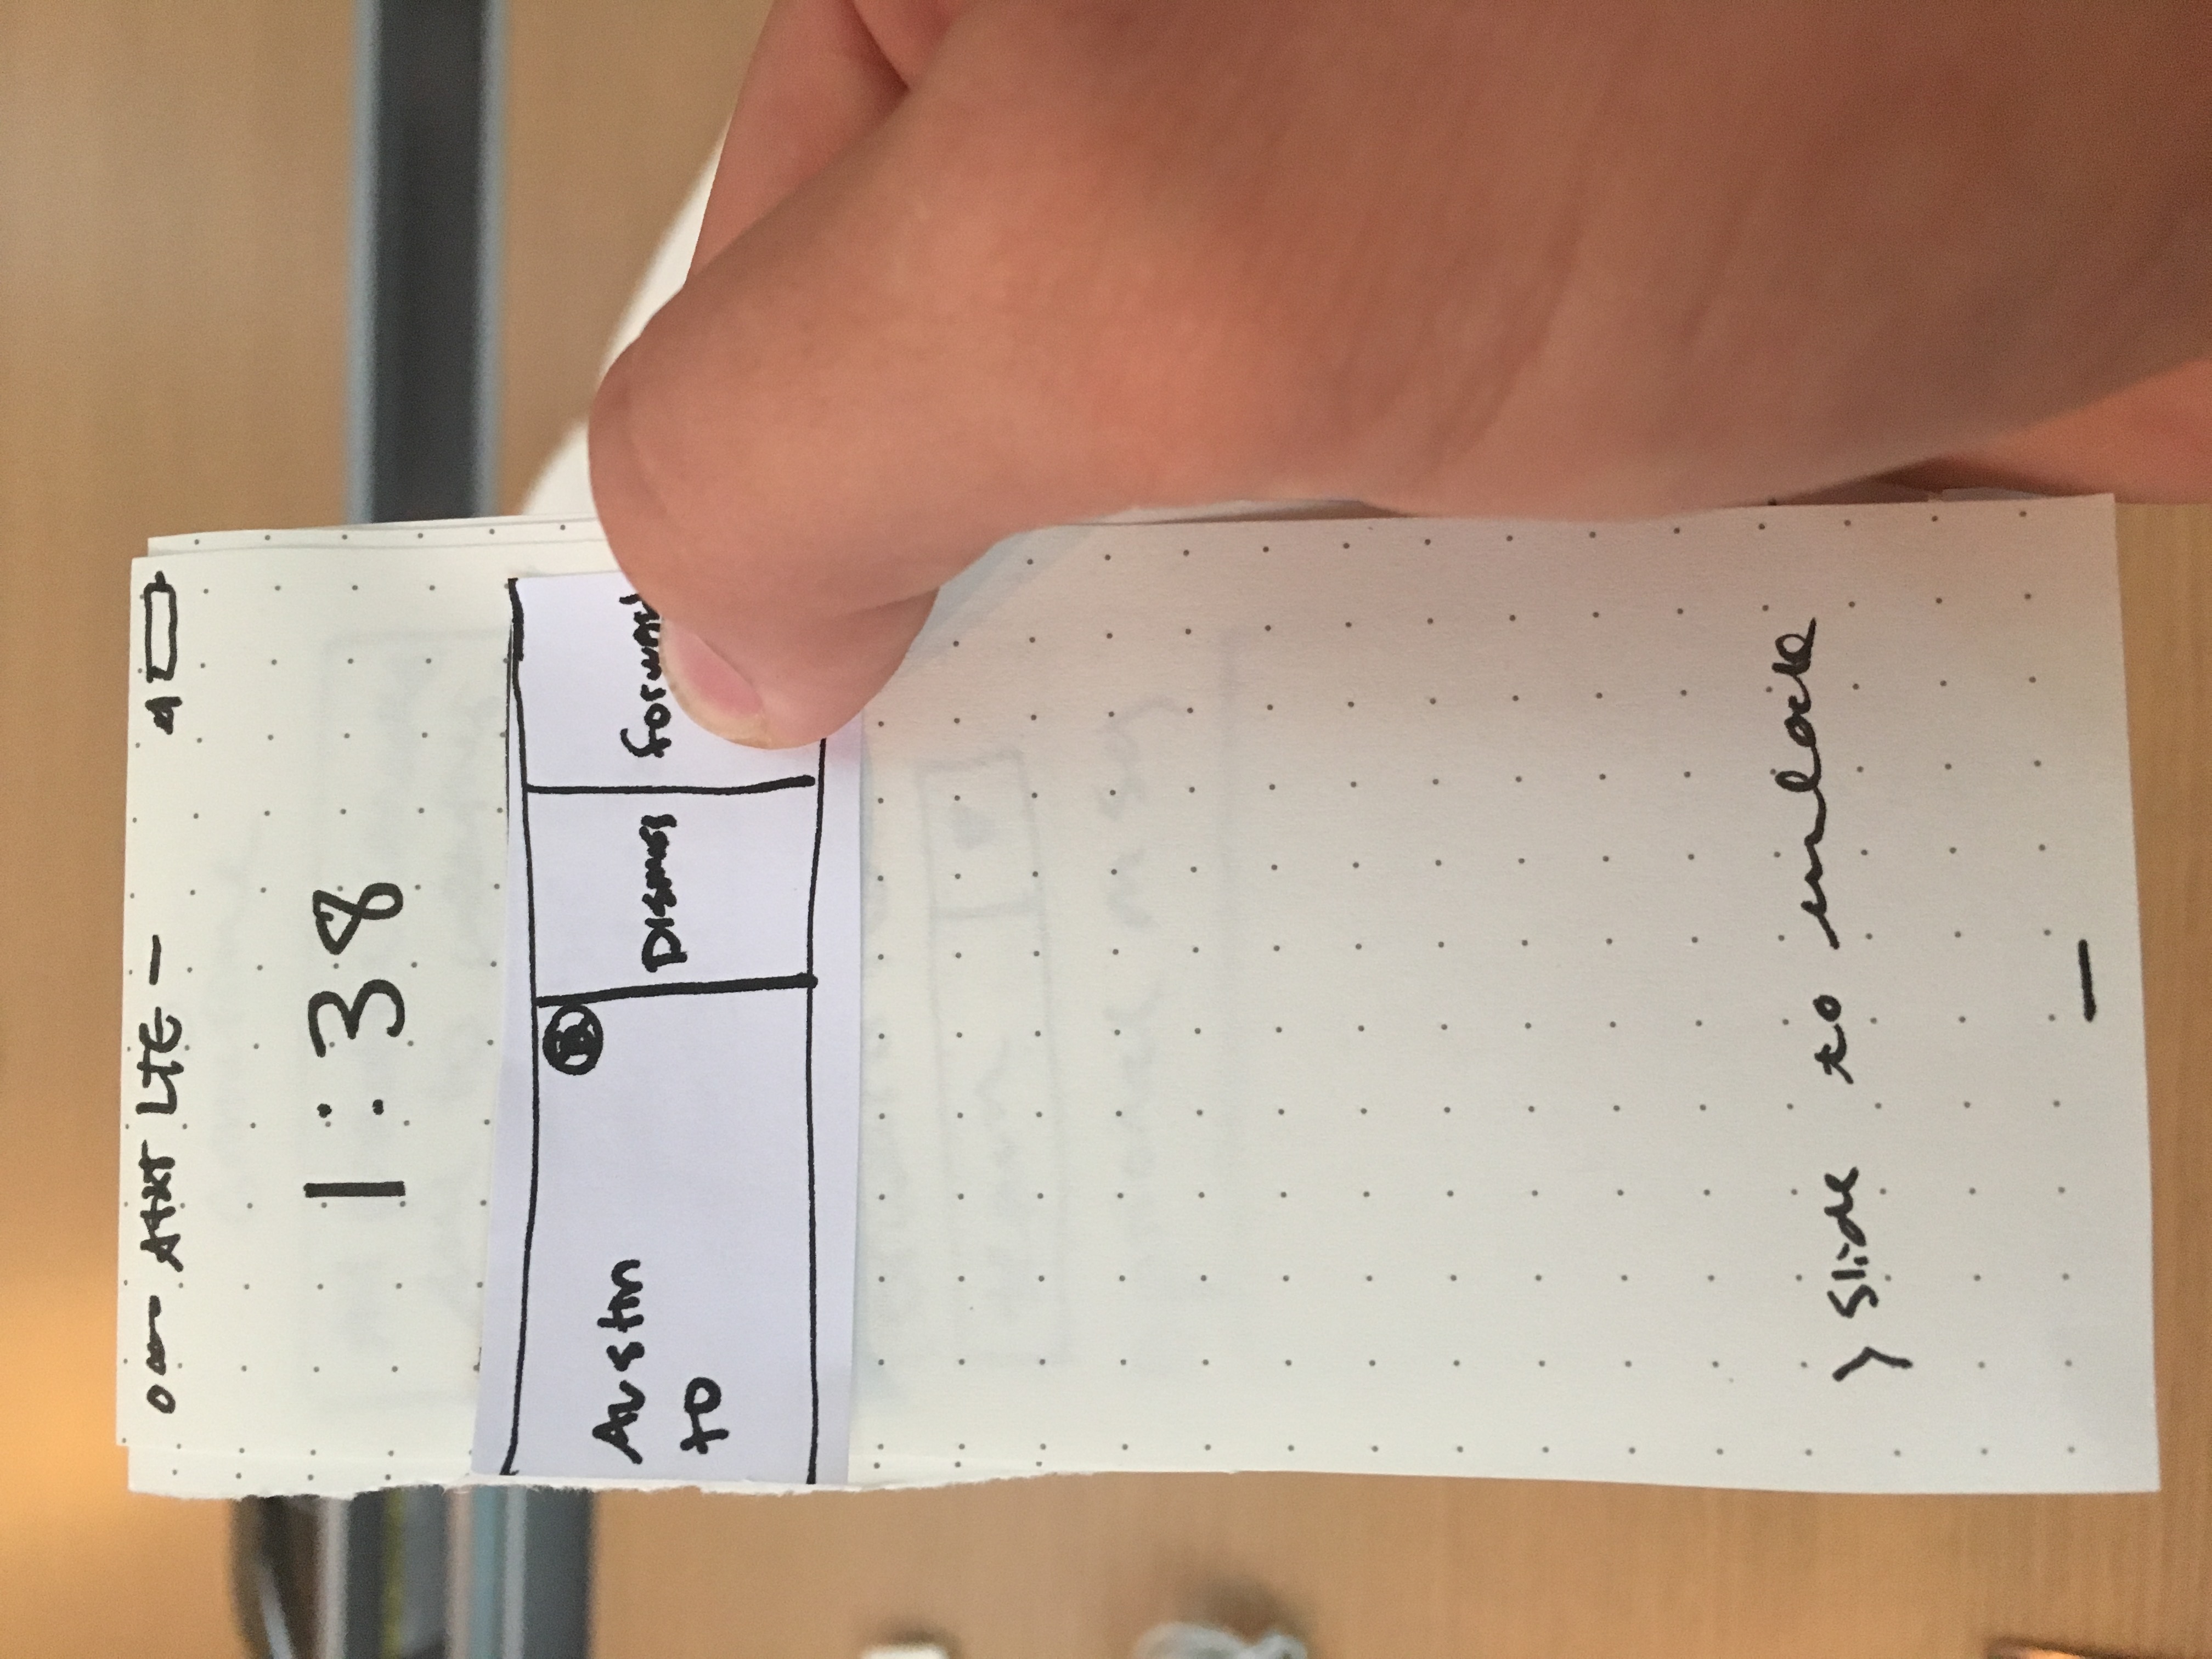 AT&T LTE
1:38
Austin
to
Dismiss
Forward
> Slide to unlock